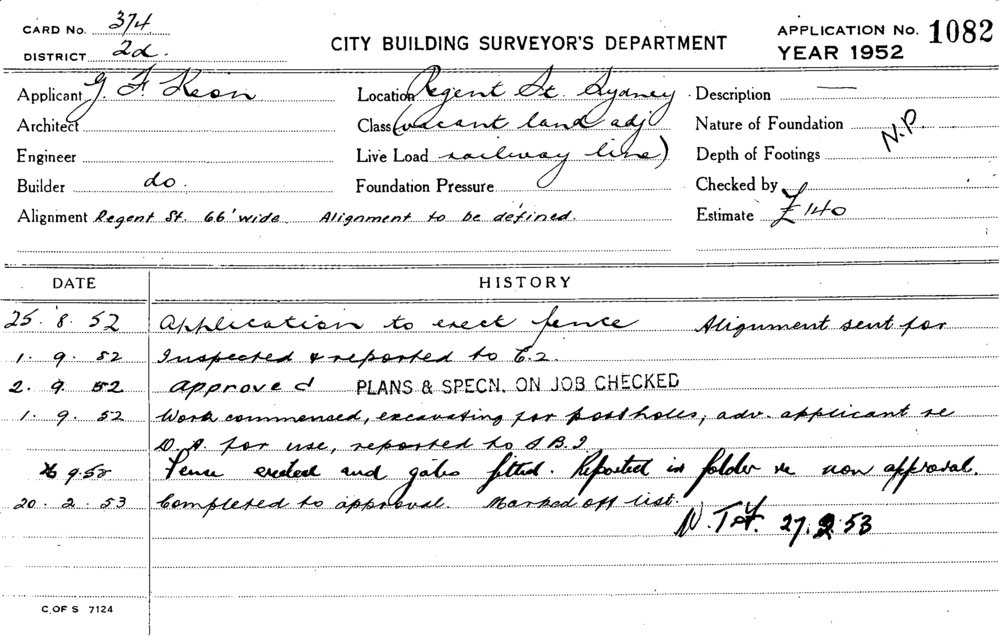 CARD No. 374
DISTRICT 2d.
CITY BUILDING SURVEYOR'S DEPARTMENT
APPLICATION No. 1082
YEAR 1952
Applicant G. F. Keon
Location Regent St. Sydney
Description —
Architect
Class (vacant land adj
Nature of Foundation N.P.
Engineer
Live Load railway line)
Depth of Footings
Builder do.
Foundation Pressure
Checked by
Alignment Regent St. 66' wide. Alignment to be defined.
Estimate £140
DATE HISTORY
25. 8. 52 Application to erect fence Alignment sent for
1. 9. 52 Inspected & reported to C.2.
2. 9. 52 Approved PLANS & SPECN. ON JOB CHECKED
1. 9. 52 Work commenced, excavating for postholes, adv. applicant re
D.A. for use, reported to
9.52 Fence erected and gates fitted. Reported in folder re non approval.
20. 2. 53 Completed to approval. Marked off list.
27. 2 53
C. OF S 7124